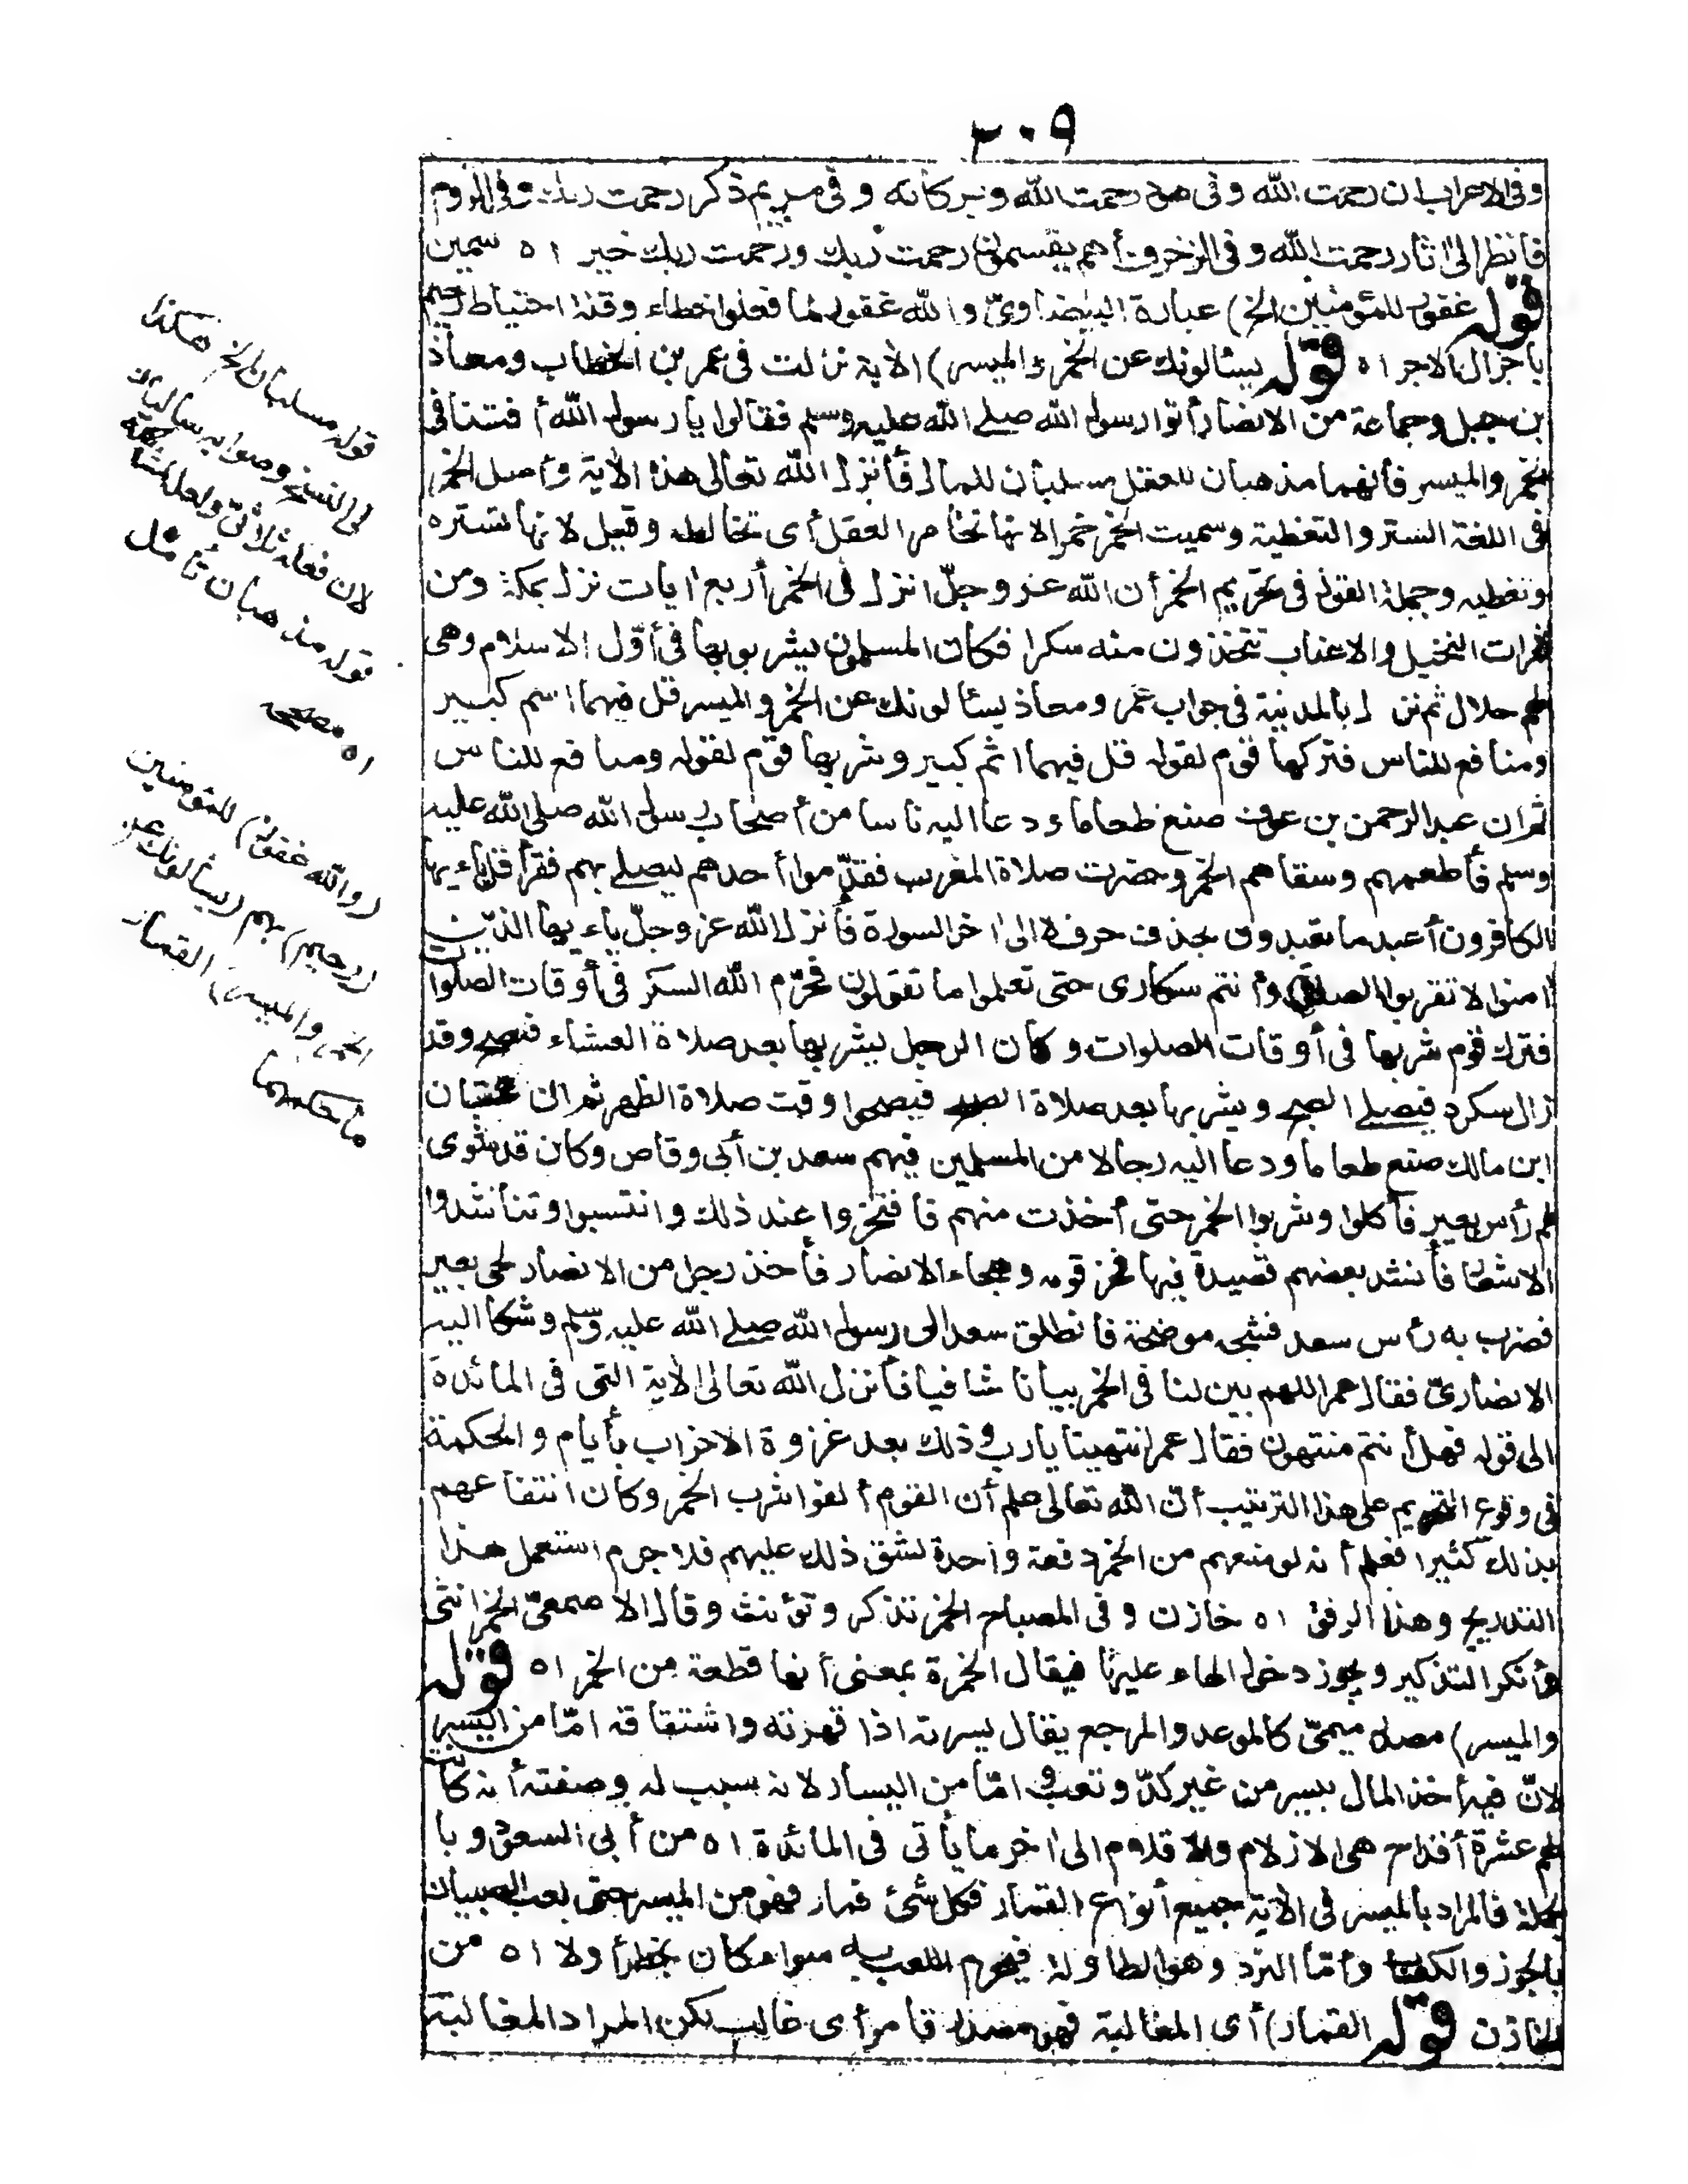 ٢٠٩
وفى الاعراب ان رحمت الله وفى هود رحمت الله وبركاته وفى مريم ذكر رحمت ربك وفى الروم
فانظر الى اثار رحمت الله وفى الزخرف أهم يقسمون رحمت ربك ورحمت ربك خير اه سمين
قوله غفور للمؤمنين الخ) عبارة البيضاوىّ والله غفور لما فعلوا خطاء وقلة احتياط رحيم
باجزال الاجر اه قوله يسئالونك عن الخمر والميسر) الاٰية نزلت فى عمر بن الخطاب ومعاذ
بن جبل وجماعة من الانصار أتوا رسول الله صلے الله عليه وسلم فقالوا يا رسول الله أفتنا فى
الخمر والميسر فانهما مذهبان للعقل مسلبان للمال فأنزل الله تعالى هذه الاٰية وأصل الخمر
فى اللغة الستر والتغطية وسميت الخمر خمرا لانها تخامر العقل أى تخالطه وقيل لانها تستره
وتغطيه وجملة القول فى تحريم الخمر أن الله عز وجلّ انزل فى الخمر أربع اٰيات نزل بمكة ومن
ثمرات النخيل والاعناب تتخذون منه سكرا فكان المسلمون يشربوبها فى أوّل الاسلام وهى
لهم حلال ثم نزل بالمدينة فى جواب عمر ومعاذ يسئالونك عن الخمر والميسر قل فيهما اثم كبير
ومنافع للناس فتركها قوم لقوله قل فيهما اثم كبير وشربها قوم لقوله ومنافع للناس
ثم ان عبد الرحمن بن عوف صنع طعاما ودعا اليه ناسا من أصحاب رسول الله صلى الله عليه
وسلم فأطعمهم وسقاهم الخمر وحضرت صلاة المغرب فقدّموا أحدهم ليصلے بهم فقرأ قل ياءيها
الكافرون أعبد ما تعبدون بحذف حرف لا الى اٰخر السورة فأنزل الله عز وجلّ ياءيها الذين
اٰمنوا لا تقربوا الصلوة وأنتم سكارى حتى تعلموا ما تقولون فحرّم الله السكر فى أوقات الصلوات
فترك قوم شربها فى أوقات الصلوات وكان الرجل يشربها بعد صلاة العشاء فيصبح وقد
زال سكره فيصلے الصبح ويشربها بعد صلاة الصبح فيصحوا وقت صلاة الظهر ثم ان عتبان
ابن مالك صنع طعاما ودعا اليه رجالا من المسلمين فيهم سعد بن أبى وقاص وكان قد شوى
لهم رأس بعير فأكلوا وشربوا الخمر حتى أخذت منهم فافتخروا عند ذلك وانتسبوا وتناشدوا
الاشعار فأنشد بعضهم قصيدة فيها فخر قومه وهجاء الانصار فأخذ رجل من الانصار لحى بعير
فضرب به رأس سعد فشجه موضحة فانطلق سعد الى رسول الله صلے الله عليه وسلم وشكا اليه
الانصارىّ فقال عمر اللهم بين لنا فى الخمر بيانا شافيا فأنزل الله تعالى الاٰية التى فى المائدة
الى قوله فهل أنتم منتهون فقال عمر انتهينا يا رب وذلك بعد غزوة الاحزاب بأيام والحكمة
فى وقوع التحريم على هذا الترتيب أنّ الله تعالى علم أن القوم ألفوا شرب الخمر وكان انتفاعهم
بذلك كثيرا فعلم أنه لو منعهم من الخمر دفعة واحدة لشق ذلك عليهم فلا جرم استعمل هذا
التدريج وهذا الرفق اه خازن وفى المصباح الخمر تذكر وتؤنث وقال الاصمعىّ الخمر انثى
وأنكر التذكير ويجوز دخول الهاء عليها فيقال الخمرة بمعنى أنها قطعة من الخمر اه قوله
والميسر) مصدر ميمىّ كالموعد والمرجع يقال يسرته اذا قهرته واشتقاقه امّا من اليسر
لانّ فيه أخذ المال بيسر من غير كدّ وتعب وامّا من اليسار لانه سبب له وصفته أنه كانت
لهم عشرة أقداح هى الازلام والاقلام الى اٰخر ما يأتى فى المائدة اه من أبى السعود وبا
لجملة فالمراد بالميسر فى الاٰية جميع أنواع القمار فكل شئ قمار فهو من الميسر حتى لعب الصبيان
بالجوز والكعاب وأمّا النرد وهو الطاولة فيحرم اللعب به سواء كان بخطر أولا اه من
الخازن قوله القمار) أى المغالبة فهو مصدر قامر أى غالب لكن المراد المغالبة
قوله مسلبان الخ هكذا
فى النسخ وصوابه سالبان
لان فعله ثلاثىّ ولعله لمشاكلة
قوله مذهبان تأمّل
اه مصححه
(والله غفور) للمؤمنين
(رحيم) بهم (يسألونك عن
الخمر والميسر) القمار
ما حكمهما